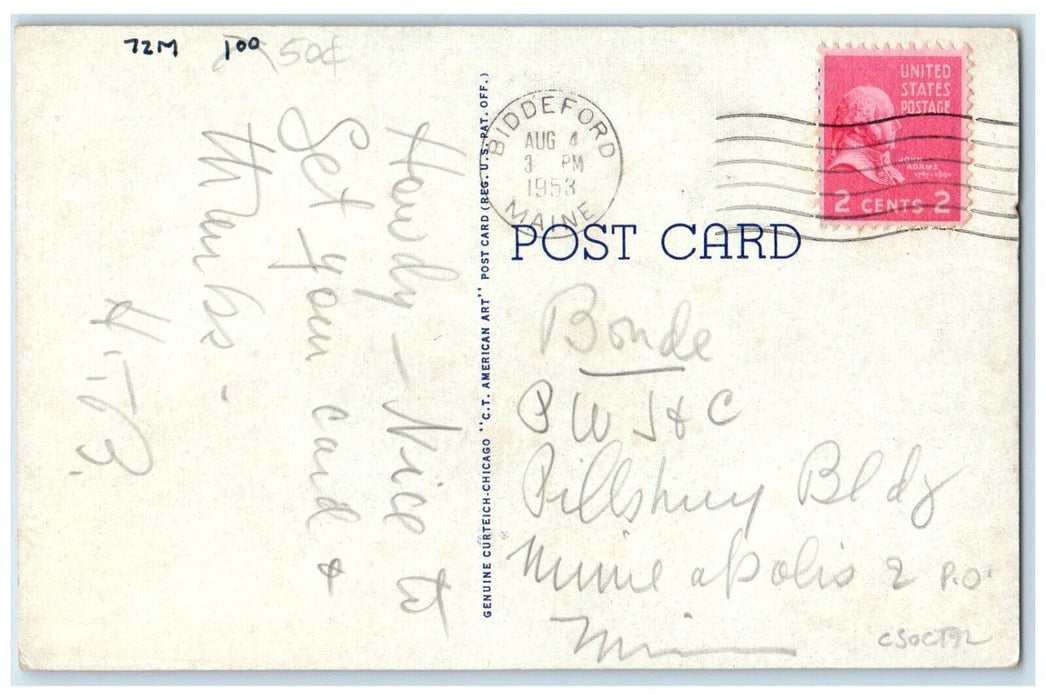 72M 100 50¢
Howdy - Nice to
Get your card &
thanks -
H.T.B.
GENUINE CURTEICH-CHICAGO "C.T. AMERICAN ART" POST CARD (REG. U.S. PAT. OFF.)
BIDDEFORD
AUG 4
3 PM
1953
MAINE
UNITED
STATES
POSTAGE
JOHN
ADAMS
1797-1801
2 CENTS 2
POST CARD
Bonde
P W J & C
Pillsbury Bldg
Minneapolis 2 P.O.
Minn
CSOCT92